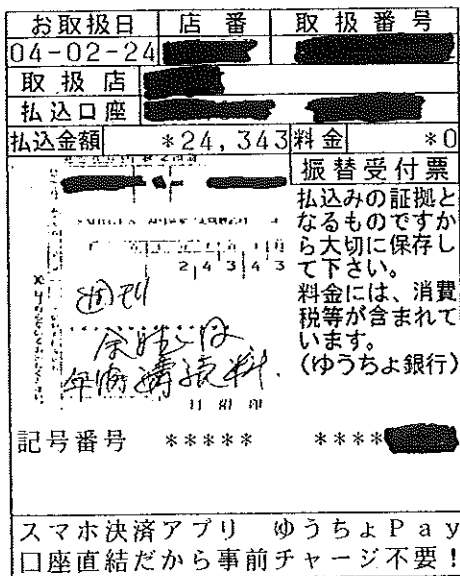 お取扱日 店番 取扱番号
04-02-24
取扱店
払込口座
払込金額 *24,343 料金 *0
振替受付票
払込みの証拠と
なるものですか
ら大切に保存し
て下さい。
料金には、消費
税等が含まれて
います。
(ゆうちょ銀行)
2 4 3 4 3
週刊
年間購読料.
記号番号 ***** ****
スマホ決済アプリ ゆうちょPay
口座直結だから事前チャージ不要!